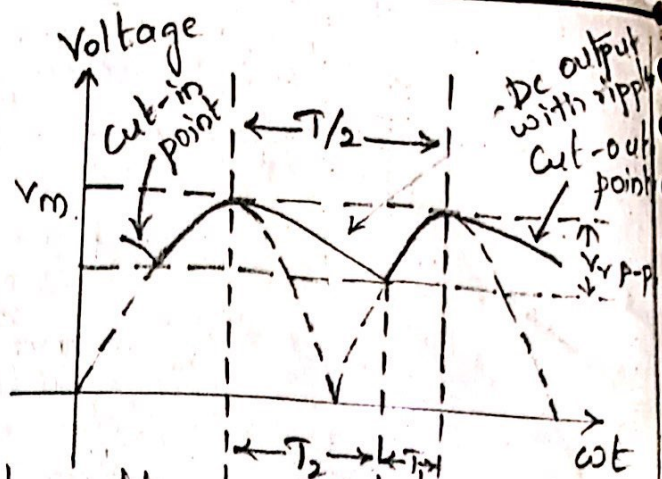 Voltage
Cut-in
point
T/2
DC output
with ripple
Cut-out
point
Vm
Vr p-p
T2
T1
ωt